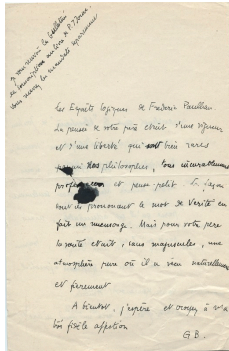 je vous renvoie le bulletin
de souscription au livre de P.
vous aurez le mandat séparément
Les Esprits logiques de Frédéric Paulhan
La pensée de votre père était d'une vigueur
et d'une liberté qui sont bien rares
parmi nos philosophes, tous incurablement
professeurs et pense petit. La façon
dont ils prononcent le mot de Vérité en
fait un mensonge. Mais pour votre père
la vérité était, sans majuscules, une
atmosphère pure où il a vécu naturellement
et fièrement
A bientôt, j'espère et croyez à ma
très fidèle affection
G B.